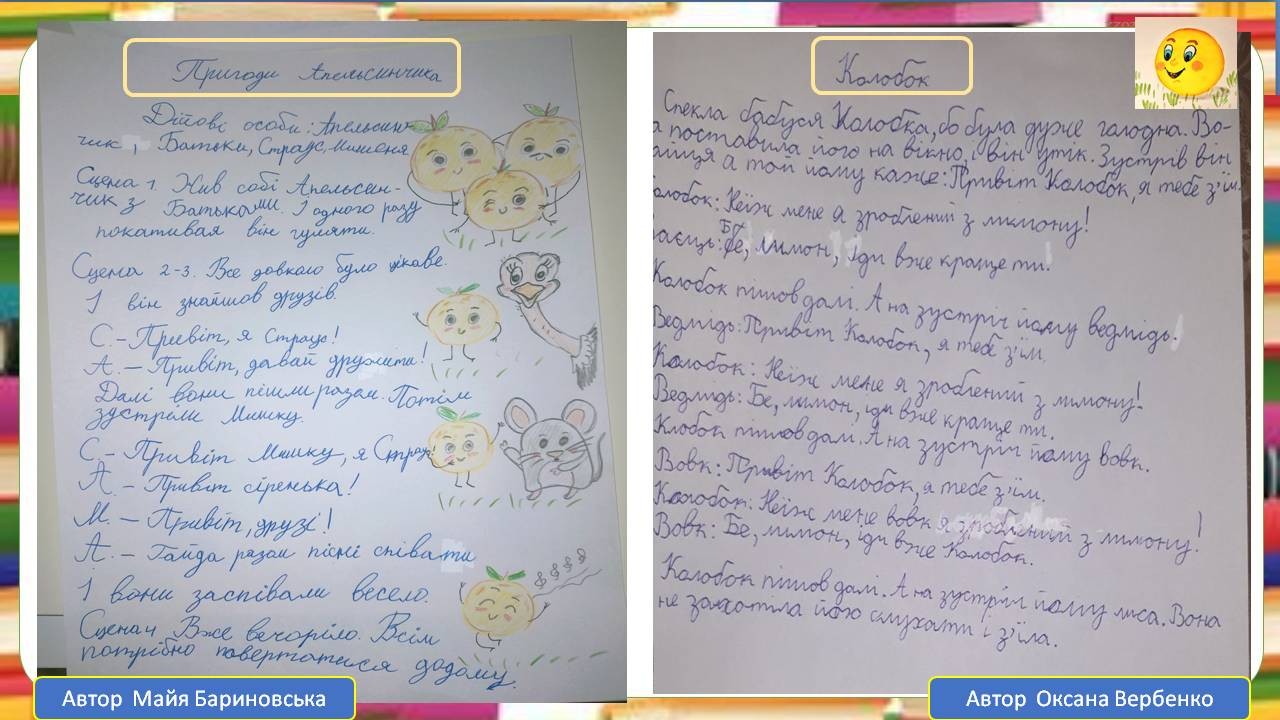 Пригоди Апельсинчика
Дійові особи: Апельсин-
чик, Батьки, Страус, Мишеня
Сцена 1. Жив собі Апельсин-
чик з Батьками. І одного разу
покативая він гуляти.
Сцена 2-3. Все довкола було цікаве.
І він знайшов друзів.
С. – Привіт, я Страус!
А. – Привіт, давай дружити!
Далі вони пішли разом. Потім
зустріли Мишку.
С. – Привіт Мишку, я Страус!
А. – Привіт сіренька!
М. – Привіт, друзі!
А. – Гайда разом пісні співати
І вони заспівали весело.
Сцена 4 Вже вечоріло. Всім
потрібно повертатися додому.
Автор Майя Бариновська
Колобок
Спекла бабуся Колобка, бо була дуже голодна. Во-
а поставила його на вікно, і він утік. Зустрів він
айця а той йому каже: Привіт Колобок, я тебе з'їм.
Колобок: Неїж мене я зроблений з лимону!
аєць: Бе, лимон, іди вже краще ти.
Колобок пішов далі. А на зустріч йому ведмідь.
Ведмідь: Привіт Колобок, я тебе з'їм.
Колобок: Неїж мене я зроблений з лимону!
Ведмідь: Бе, лимон, іди вже краще ти.
Клобок пішов далі. А на зустріч йому вовк.
Вовк: Привіт Колобок, я тебе з'їм.
Колобок: Неїж мене вовк я зроблений з лимону!
Вовк: Бе, лимон, іди вже Колобок.
Колобок пішов далі. А на зустріч йому лиса. Вона
не захотіла його слухати і з'їла.
Автор Оксана Вербенко